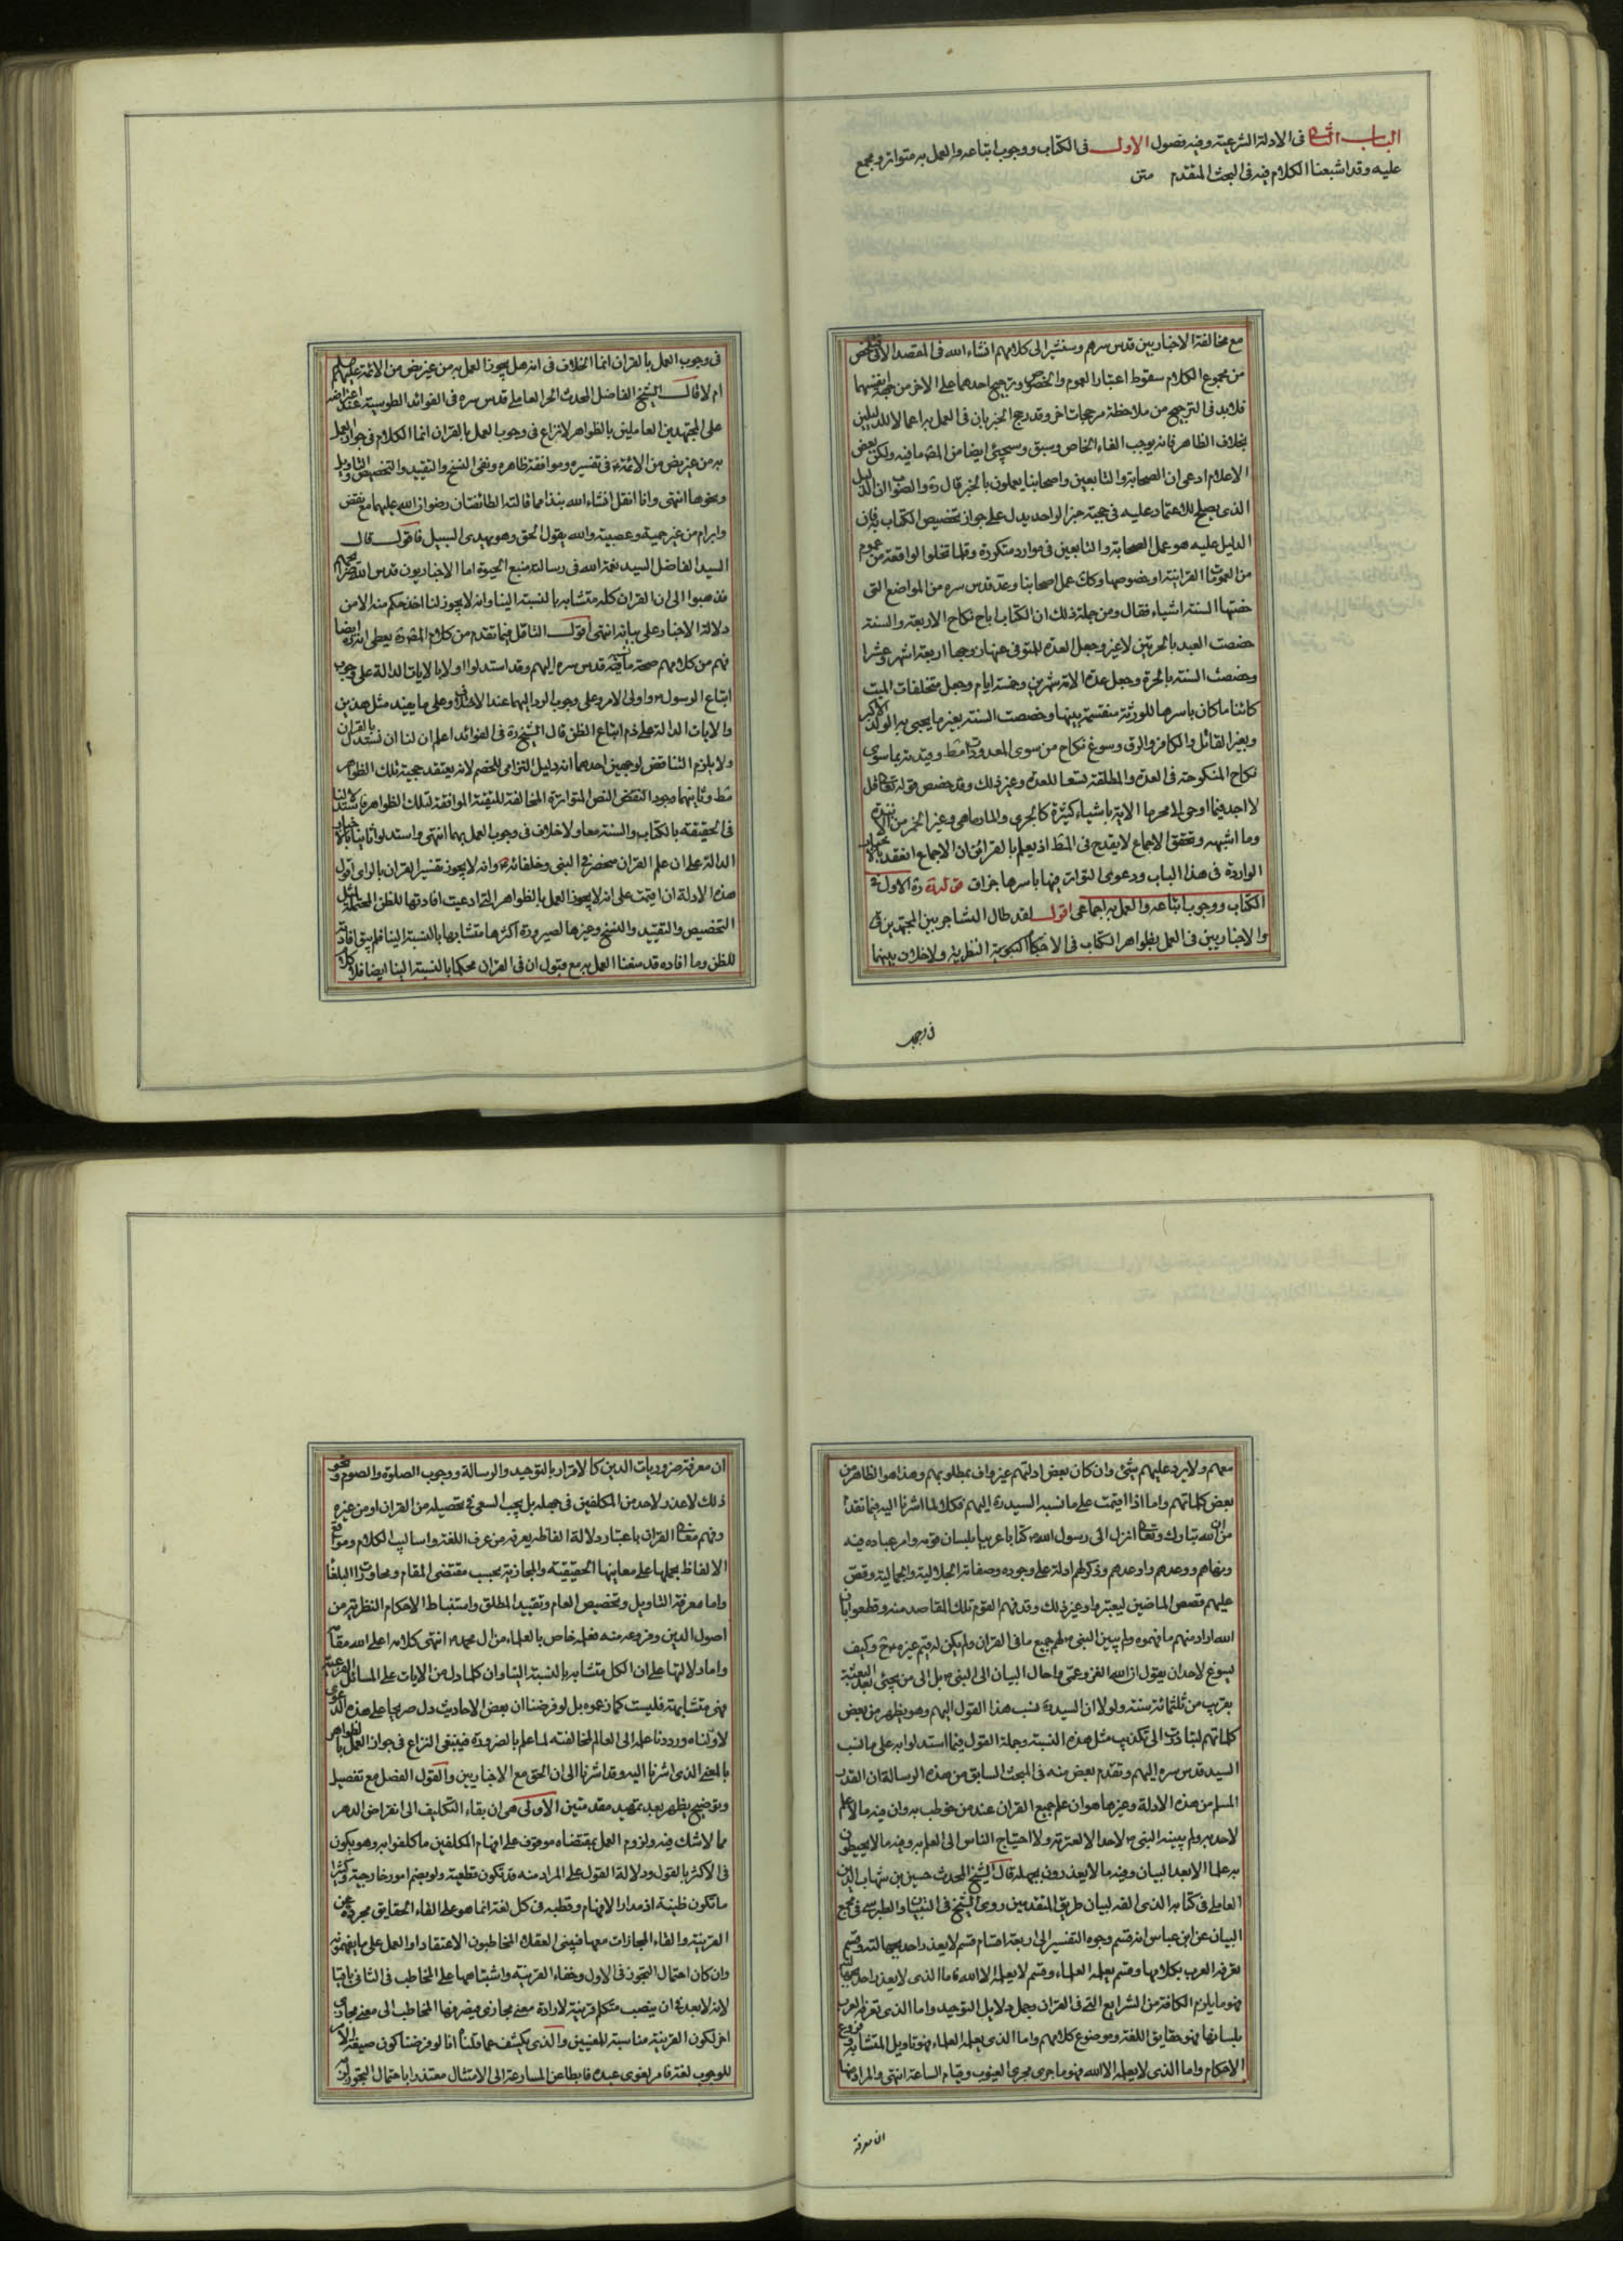 الباب الثانی فی الادلة الشرعیة وفیه فصول الاول فی الکتاب ووجوب اتباعه والعمل به متواتر ومجمع
علیه وقد اشبعنا الکلام فیه فی البحث المتقدم متن
مع مخالفة الاخباریین قدس سرهم وسنشیر الی کلامهم انشاء الله فی المقصد الاتی
من مجموع الکلام سقوط اعتبار العموم والخصوص وترجیح احدهما علی الاخر من جهة نفسهما
فلابد فی الترجیح من ملاحظة مرجحات اخر وقد رجح الخبر بان فی العمل به اعمالا للدلیلین
بخلاف الظاهر فانه یوجب الغاء الخاص وسبق وسیجئ ایضا من المصـ ما فیه ولکن بعض
الاعلام ادعی ان الصحابة والتابعین واصحابنا یعملون بالخبر قال ره والصواب ان الدلیل
الذی یصلح للاعتماد علیه فی حجیة خبر الواحد یدل علی جواز تخصیص الکتاب به فان
الدلیل علیه هو عمل الصحابة والتابعین فی موارد متکررة وقلما تخلوا الواقعة من عموم
من العمومات القرانیة او خصوصها وکک عمل اصحابنا وعد قدس سره من المواضع التی
خصتها السنة اشیاء فقال ومن جملة ذلک ان الکتاب اباح نکاح الاربعة والسنة
خصصت العبد بالحرتین لاغیر وجعل العدة للمتوفی عنها زوجها اربعة اشهر وعشرا
وخصصت السنة بالحرة وجعل عدة الامة شهرین وخمسة ایام وجعل متخلفات المیت
کائنا ما کان باسرها للورثة منقسمة بینها وخصصت السنة بغیر ما یحبی به الولد الاکبر
وبغیر القاتل والکافر والرق وسوغ نکاح من سوی المعدودات فقط وقیدته بما سوی
نکاح المنکوحة فی العدة والمطلقة تسعا للعدة وغیر ذلک وقد خصص قوله تعالی قل
لا اجد فیما اوحی الی محرما الایة باشیاء کثیرة کالجری والمارماهی وغیر الخمر من الانبذة
وما اشبهه وتحقق الاجماع لا یقدح فی المط اذ یعلم بالقرائن ان الاجماع انعقد بالاخبار
الواردة فی هذا الباب ودعوی التواتر فیها باسرها جزاف قوله ره الاول فی
الکتاب ووجوب اتباعه والعمل به اجماعی اقول لقد طال التشاجر بین المجتهدین
والاخباریین فی العمل بظواهر الکتاب فی الاحکام النظریة ولا خلاف بینهما
فی وجوب
فی وجوب العمل بالقران انما الخلاف فی انه هل یجوز العمل به من غیر نص من الائمة علیهم
ام لا قال الشیخ الفاضل المحدث الحر العاملی قدس سره فی الفوائد الطوسیة عند اعتراضه
علی المجتهدین العاملین بالظواهر لا نزاع فی وجوب العمل بالقران انما الکلام فی جواز العمل
به من غیر نص من الائمة فی تفسیره وموافقة ظاهره ونفی النسخ والتقیید والتخصیص والتاویل
ونحوها انتهی وانا انقل انشاء الله نبذا مما قالته الطائفتان رضوان الله علیهما مع نقض
وابرام من غیر حمیة وعصبیة والله یقول الحق وهو یهدی السبیل فاقول قال
السید الفاضل السید نعمة الله فی رسالته منبع الحیوة اما الاخباریون قدس الله
فذهبوا الی ان القران کله متشابه بالنسبة الینا وانه لا یجوز لنا اخذ حکم منه الا من
دلالة الاخبار علی بیانه انتهی اقول التامل فیما تقدم من کلام المصـ ره یعطی انه ره ایضا
فهم من کلامهم صحة ما قدس سره الیهم وقد استدلوا اولا بالایات الدالة علی وجوب
اتباع الرسول واولی الامر وعلی وجوب الرد الیهما عند الاختلاف وعلی ما یفید مثل هذین
والایات الدالة علی ذم اتباع الظن قال الشیخ ره فی الفوائد اعلم ان لنا ان نستدل بالقران
ولا یلزم التناقض لوجهین احدهما انه دلیل التزامی للخصم لانه یعتقد حجیة تلک الظواهر
فقط وثانیهما وجود النص المتواترة المخالفة للتقیة الموافقة لتلک الظواهر
فی الحقیقة بالکتاب والسنة معا ولا خلاف فی وجوب العمل بهما انتهی واستدلوا ثانیا بالاخبار
الدالة علی ان علم القران منحصر فی النبی وخلفائه وانه لا یجوز تفسیر القران بالرای اقول
هذه الادلة ان اقیمت علی انه لا یجوز العمل بالظواهر التی ادعیت افادتها للظن
التخصیص والتقیید والنسخ وغیرها لصیرورة اکثرها متشابها بالنسبة الینا فلم یبق افادة
للظن وما افاده قد منعنا العمل به مع قبول ان فی القران محکما بالنسبة الینا ایضا فلا کلام
معهم ولا یرد علیهم شئ وان کان بعض ادلتهم غیر واف بمطلوبهم وهذا هو الظاهر من
بعض کلماتهم واما اذا اقیمت علی ما نسبه السید ره الیهم فکلا لما اشرنا الیه فیما تقدم
من ان الله تبارک وتعالی انزل الی رسول الله کتابا عربیا بلسان قومه وامر عباده فیه
ونهاهم ووعدهم واوعدهم وذکر لهم ادلة علی وجوده وصفاته الجلالیة والجمالیة وقص
علیهم قصص الماضین لیعتبروا وغیر ذلک وقد فهم القوم تلک المقاصد منه وقطعوا بان
الله اراد منهم ما فهموه ولم یبین النبی لهم جمیع ما فی القران ولم یکن له قیم غیره وکیف
یسوغ لاحد ان یقول ان الله الغز وعمی واحال البیان الی النبی بل الی من یجئ بعد البعثة
بقریب من ثلثمائة سنة ولولا ان السید ره نسب هذا القول الیهم وهو یظهر من بعض
کلماتهم لبادرت الی تکذیب مثل هذه النسبة وجملة القول فیما استدلوا به علی ما نسب
السید قدس سره الیهم وتقدم بعض منه فی المبحث السابق من هذه الرسالة ان القدر
المسلم من هذه الادلة وغیرها هو ان علم جمیع القران عند من خوطب به وان فیه ما لا علم
لاحد به ولم یبینه النبی لاحد الا لعترته ولا احتیاج الناس الی العلم به وفیه ما لا یحیطون
به علما الا بعد البیان وفیه ما لا یعذرون بجهله قال الشیخ المحدث حسین بن شهاب الدین
العاملی فی کتابه الذی الفه لبیان طریق المتقدمین روی الشیخ فی التبیان والطبرسی فی مجمع
البیان عن ابن عباس انه قسم وجوه التفسیر الی اربعة اقسام قسم لا یعذر احد بجهالته وقسم
تعرفه العرب بکلامها وقسم یعلمه العلماء وقسم لا یعلمه الا الله فاما الذی لا یعذر احد بجهالته
فهو ما یلزم الکافة من الشرایع التی فی القران وجمل دلایل التوحید واما الذی تعرفه العرب
بلسانها فهو حقایق اللغة وموضوع کلامهم واما الذی یعلمه العلماء فهو تاویل المتشابه وفروع
الاحکام واما الذی لا یعلمه الا الله فهو ما جری مجری الغیوب وقیام الساعة انتهی والمراد
ان معرفة
ان معرفة ضروریات الدین کالاقرار بالتوحید والرسالة ووجوب الصلوة والصوم ونحو
ذلک لا عذر لاحد من المکلفین فی جهله بل یجب السعی فی تحصیله من القران او من غیره
وفهم معانی القران باعتبار دلالة الفاظه یعرفه من عرف اللغة واسالیب الکلام ومواقع
الالفاظ بحملها علی معانیها الحقیقیة والمجازیة بحسب مقتضی المقام ومحاورات البلغاء
واما معرفة التاویل وتخصیص العام وتقیید المطلق واستنباط الاحکام النظریة من
اصول الدین وفروعه منه فعلمه خاص بالعلماء من ال محمد انتهی کلامه اعلی الله مقامه
واما دلالتها علی ان الکل متشابه بالنسبة الینا وان کلما دل من الایات علی المسائل الفرعیة
فهی متشابهة فلیست کما زعموه بل لو فرضنا ان بعض الاحادیث دل صریحا علی هذه الدعوی
لاولناه ورددنا علمه الی العالم لمخالفته لما علم بالضرورة فینبغی النزاع فی جواز العمل بالظواهر
بالمعنی الذی اشرنا الیه وقد اشرنا الی ان الحق مع الاخباریین والقول الفصل مع تفصیل
وتوضیح یظهر بعد تمهید مقدمتین الاولی هی ان بقاء التکلیف الی انقراض الدهر
مما لا شک فیه ولزوم العمل بمقتضاه موقوف علی افهام المکلفین ما کلفوا به وهو یکون
فی الاکثر بالقول ودلالة القول علی المراد منه قد تکون قطعیة ولو بضم امور خارجیة وکثیرا
ما تکون ظنیة اذ مدار الافهام وقطبه فی کل لغة انما هو علی القاء الحقایق مجردة عن
القرینة والقاء المجازات معها فیبنی العقلاء المخاطبون الاعتقاد او العمل علی ما یفهمونه
وان کان احتمال التجوز فی الاول وخفاء القرینة واشتباهها علی المخاطب فی الثانی باقیا
لانه لا بعد فی ان ینصب متکلم قرینة لارادة معنی مجازی فیصرفها المخاطب الی معنی مجازی
اخر لکون القرینة مناسبة للمعنیین والذی یکشف عما قلنا انا لو فرضنا کون صیغة الامر
للوجوب لغة فامر لغوی عبده فابطا عن المسارعة الی الامتثال معتذرا باحتمال التجوز